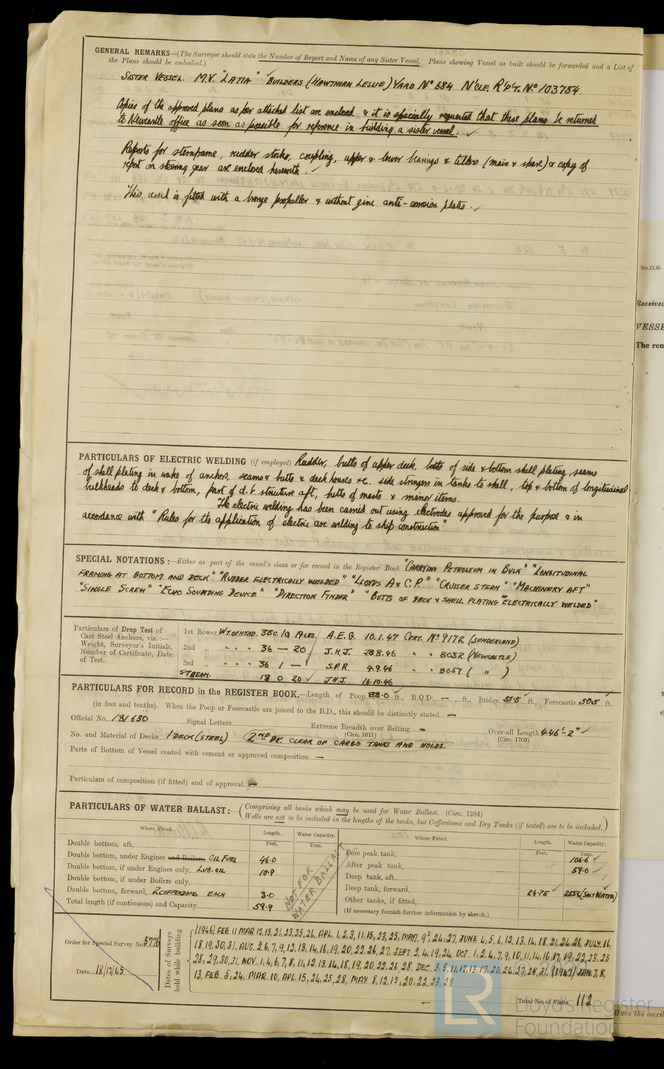 GENERAL REMARKS—(The Surveyor should state the Number of Report and Name of any Sister Vessel. Plans showing Vessel as built should be forwarded and a List of
the Plans should be embodied.)
SISTER VESSEL. M.V. "LATIA" BUILDERS (HAWTHORN LESLIE) YARD No 684 N'CLE. RPT. No 103784.
Copies of the approved plans as per attached list are enclosed & it is especially requested that these plans be returned
to Newcastle office as soon as possible for reference in building a sister vessel.
Reports for sternframe, rudder stocks, coupling, upper & lower bearings & tillers (main & spare) & copy of
report on steering gear are enclosed herewith.
This vessel is fitted with a bronze propeller & without zinc anti-corrosion plates.
PARTICULARS OF ELECTRIC WELDING (if employed) Rudder, butts of upper deck, butts of side & bottom shell plating, seams
of shell plating in wake of anchors, seams & butts of deck houses &c. side stringers in tanks to shell, top & bottom of longitudinal
bulkheads to deck & bottom, part of d.b. structure aft, butts of masts & minor items.
The electric welding has been carried out using electrodes approved for the purpose & in
accordance with "Rules for the application of electric arc welding to ship construction"
SPECIAL NOTATIONS:—Either as part of the vessel's class or for record in the Register Book "CARRYING PETROLEUM IN BULK" "LONGITUDINAL
FRAMING AT BOTTOM AND DECK" "RUDDER ELECTRICALLY WELDED" "LLOYDS A & C.P." "CRUISER STERN" "MACHINERY AFT"
"SINGLE SCREW" "ECHO SOUNDING DEVICE" "DIRECTION FINDER" "BUTTS OF DECK & SHELL PLATING ELECTRICALLY WELDED"
Particulars of Drop Test of
Cast Steel Anchors, viz.:—
Weight, Surveyor's Initials,
Number of Certificate, Date
of Test.
1st Bower WT. OF HEAD. A.E.G. 10.1.47 CERT. No 9178 (SUNDERLAND)
2nd " 36 — 20 J.H.J. 28.8.46 " 8032 (NEWCASTLE)
3rd " 36 1 — S.P.R. 4.9.46 " 8057 ( " )
STREAM. 18 0 20 J.H.J. 16.10.46
PARTICULARS FOR RECORD in the REGISTER BOOK.—Length of Poop 88.0 ft., R.Q.D. — ft., Bridge 51.5 ft., Forecastle 50.5 ft.
(in feet and tenths). When the Poop or Forecastle are joined to the B.D., this should be distinctly stated —
Official No. 181630 Signal Letters Extreme Breadth over Belting — Over-all Length 446'-2"
(Circ. 1611) (Circ. 1703)
No. and Material of Decks 1 DECK (STEEL) 2ND DK. CLEAR OF CARGO TANKS AND HOLDS.
Parts of Bottom of Vessel coated with cement or approved composition —
Particulars of composition (if fitted) and of approval —
PARTICULARS OF WATER BALLAST:— (Comprising all tanks which may be used for Water Ballast. (Circ. 1284)
Wells are not to be included in the lengths of the tanks, but Cofferdams and Dry Tanks (if tested) are to be included.)
Where Fitted. Length. Water Capacity. Where Fitted. Length. Water Capacity.
Feet. Tons. Feet. Tons.
Double bottom, aft,
Double bottom, under Engines and Boilers, OIL FUEL 46.0
Double bottom, if under Engines only, LUB. OIL 10.9
Double bottom, if under Boilers only,
Double bottom, forward, 2 COFFERDAMS EACH 3.0
Total length (if continuous) and Capacity, 59.9
NOT FOR
WATER BALLAST
Fore peak tank, 106.6
After peak tank, 59.0
Deep tank, aft,
Deep tank, forward, 24.75 255½ (SALT WATER)
Other tanks, if fitted,
(If necessary furnish further information by sketch.)
Order for Special Survey No. 5776
Date 18/12/45
Dates of Surveys
held while building
(1946) FEB 11 MAR 12, 13, 21, 23, 25, 26, APL. 1, 2, 3, 11, 15, 23, 25, MAY, 9, 24, 27, JUNE 4, 5, 6, 12, 13, 14, 18, 21, 24, 26, JULY, 16,
18, 19, 30, 31, AUG. 2, 6, 7, 9, 12, 13, 14, 16, 19, 20, 22, 26, 27, SEPT. 2, 4, 19, 24, OCT. 1, 2, 4, 7, 9, 10, 11, 14, 16, 17, 19, 22, 23, 25
28, 29, 30, 31, NOV. 1, 4, 6, 7, 8, 11, 12, 13, 14, 18, 19, 20, 22, 26, 28, DEC. 3, 5, 11, 12, 13, 17, 20, 24, 27, 28, 31, (1947) JAN 7, 8,
13, FEB. 5, 24, MAR. 10, APL. 15, 24, 25, 28, MAY 8, 12, 13, 20, 22, 23, 28
Total No. of Visits 112
Lloyd's Register
Foundation
Received
VESSE
The rem
Have the auxil